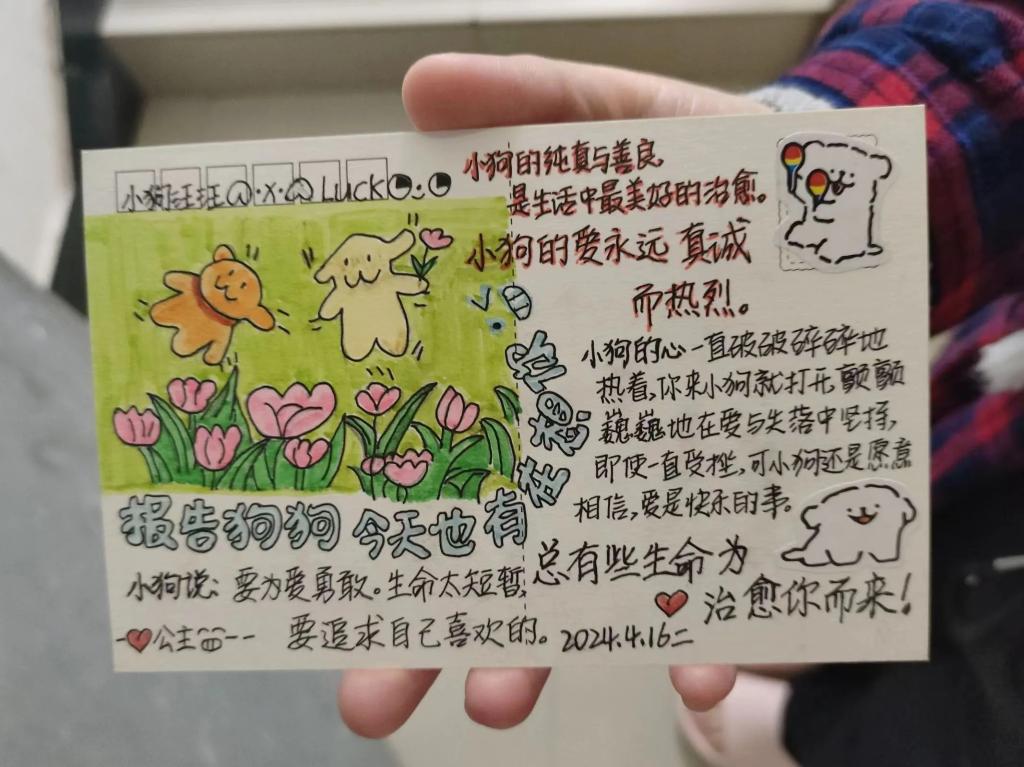 小狗汪 LUCK
小狗的纯真与善良
是生活中最美好的治愈。
小狗的爱永远 真诚
而热烈。
小狗的心一直破破碎碎地
热着,你来小狗就打开,颤颤
巍巍地在爱与失落中坚持,
即使一直受挫,可小狗还是愿意
相信,爱是快乐的事。
报告狗狗 今天也有在想你
小狗说:要为爱勇敢。生命太短暂,
要追求自己喜欢的。
公主
总有些生命为
治愈你而来!
2024.4.16二